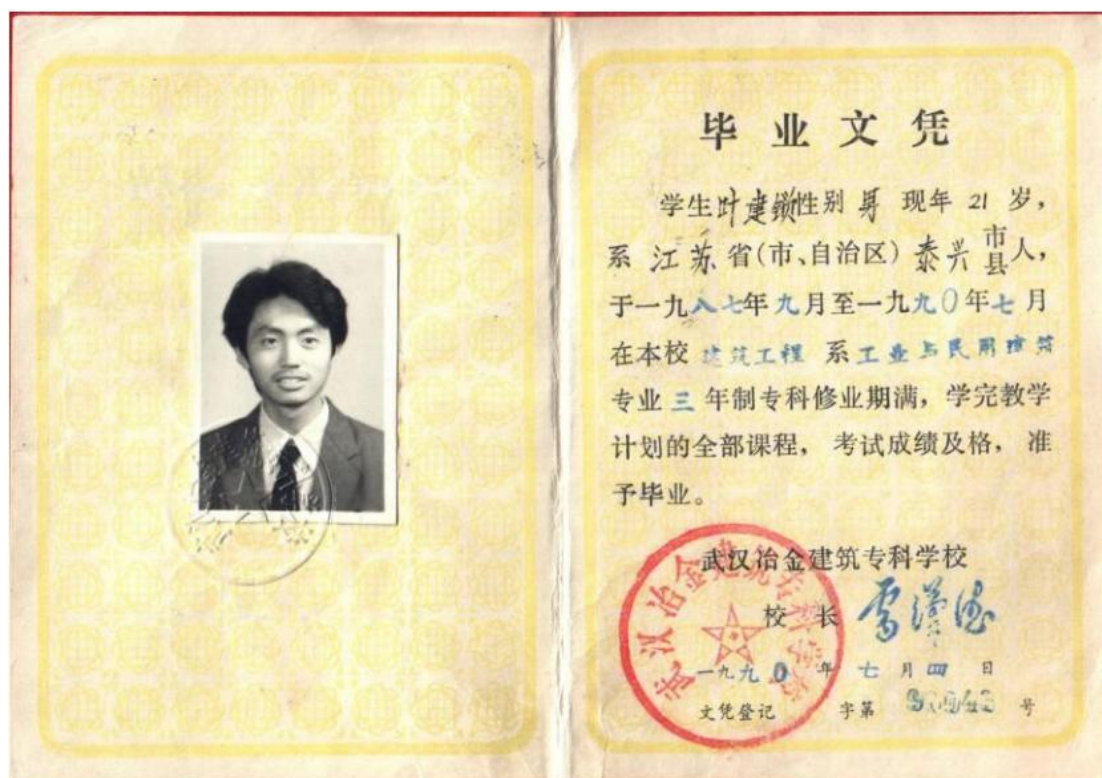 毕业文凭
学生叶建锁性别 男 现年 21 岁，
系 江苏 省(市、自治区) 泰兴 市县人，
于一九八七年九月至一九九0年七月
在本校 建筑工程 系 工业与民用建筑
专业 三 年制专科修业期满，学完教学
计划的全部课程，考试成绩及格，准
予毕业。
武汉冶金建筑专科学校
校 长
武汉冶金建筑专科学校
一九九0 年 七 月 四 日
文凭登记 字第 号